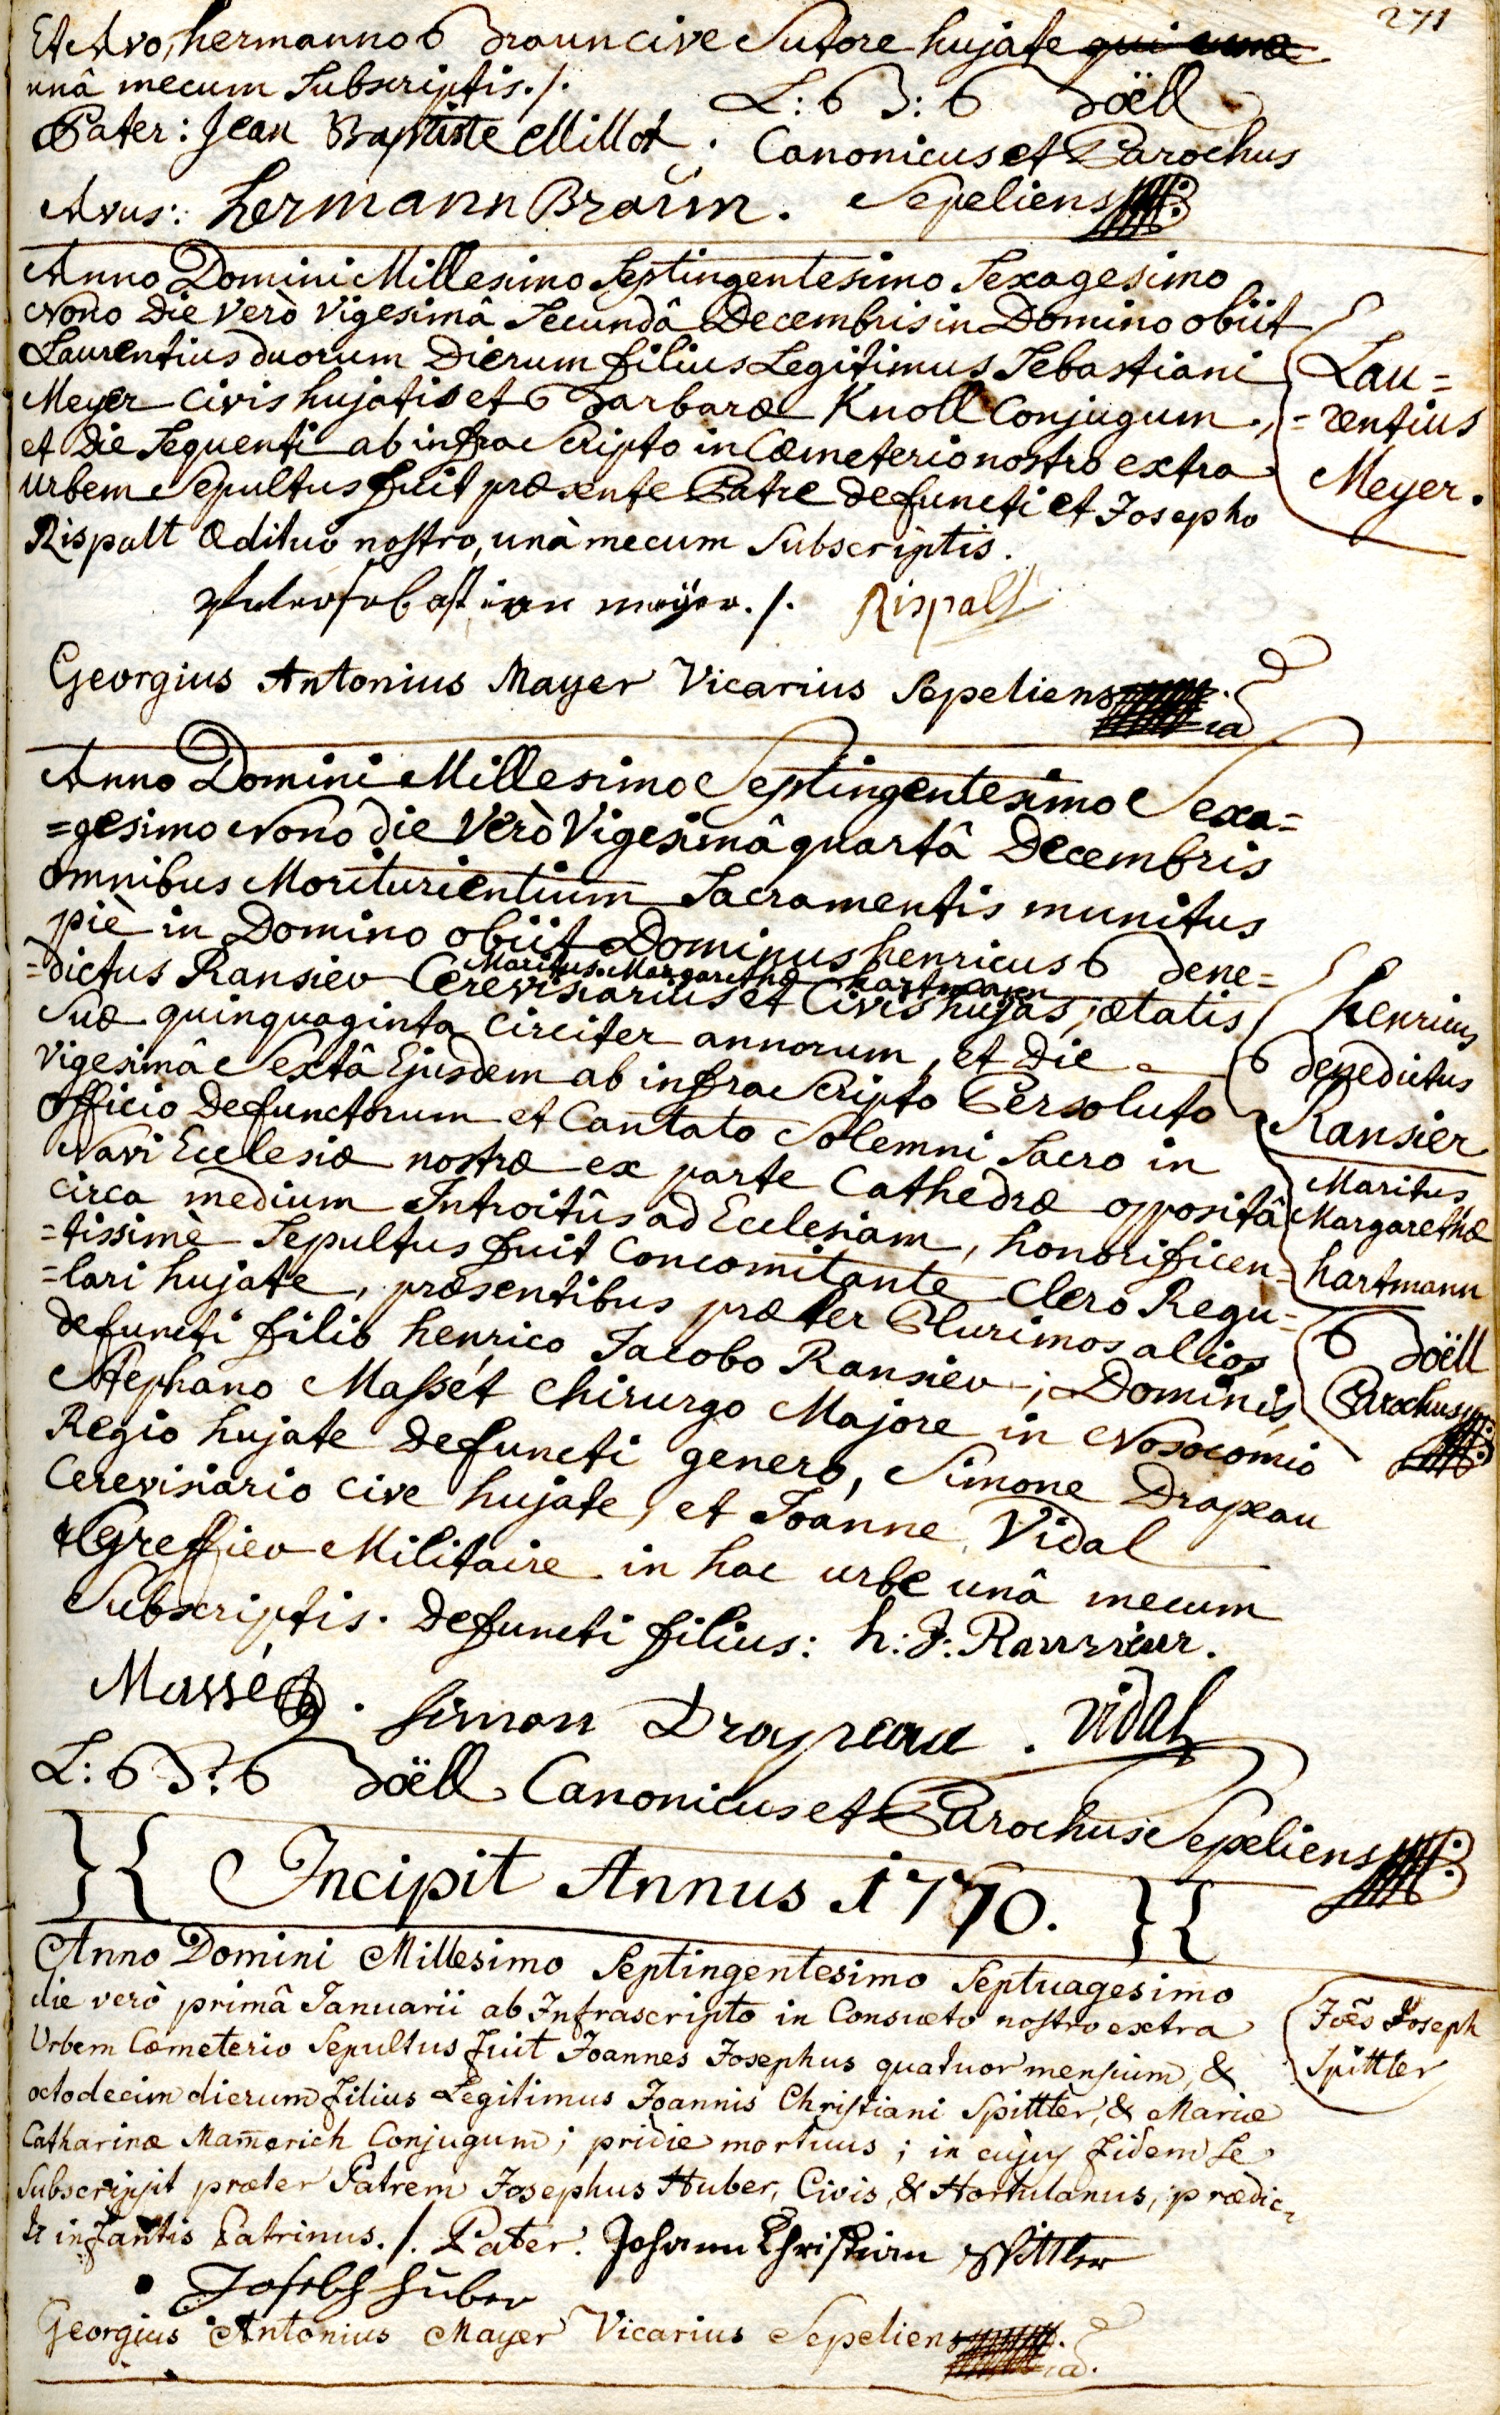 271
Et Avo, hermanno Braun cive Sutore hujate qui una
unâ mecum Subscriptis./.
L: B: B: Boëll
Pater: Jean Baptiste Millot; Canonicus et Parochus
Avus: hermann Braun. Sepeliens
Anno Domini Millesimo Septingentesimo Sexagesimo
Nono Die Verò Vigesimâ Secundâ Decembris in Domino obiit
Laurentius duorum Dierum filius Legitimus Sebastiani
Meyer civis hujatis et Barbaræ Knoll Conjugum.,
et Die Sequenti ab infra Scripto in Cœmeterio nostro extra
urbem Sepultus fuit præsente Patre defuncti et Josepho
Rispalt ædituo nostro, unà mecum Subscriptis.
Lau=
=rentius
Meyer.
sebastian meÿer./. Rispalt
Georgius Antonius Mayer Vicarius Sepeliens
Anno Domini Millesimo Septingentesimo Sexa=
=gesimo Nono die Verò Vigesimâ quartâ Decembris
omnibus Moriturientium Sacramentis munitus
piè in Domino obiit Dominus henricus Bene=
Maritus Margarethæ hartmann
=dictus Ransiev Cerevisiarius et Civis hujas, ætatis
Suæ quinquaginta circiter annorum, et Die
Vigesimâ Sextâ Ejusdem ab infra Scripto Persoluto
officio Defunctorum et Cantato Solemni Sacro in
Navi Ecclesiæ nostræ ex parte Cathedræ oppositâ
circa medium Introitûs ad Ecclesiam, honorificen=
=tissimè Sepultus fuit Concomitante Clero Regu=
=lari hujate, præsentibus præter Plurimos alios
defuncti filio henrico Jacobo Ransiev; Dominis,
Stephano Massét Chirurgo Majore in Nosocomio
Regio hujate defuncti genero, Simone Drapeau
Cerevisiario cive hujate, et Joanne Vidal
Greffiev Militaire in hac urbe unâ mecum
Subscriptis. Defuncti filius: h: J: Ransieur.
henricus
Benedictus
Ransier
Maritus
Margarethæ
hartmann
Boëll
Parochus
Massé. simon Drapeau. vidal
L: B: B: Boëll Canonicus et Parochus Sepeliens
Incipit Annus 1770.
Anno Domini Millesimo Septingentesimo Septuagesimo
die verò primâ Januarii ab Infrascripto in Consueto nostro extra
Urbem Cœmeterio Sepultus fuit Joannes Josephus quatuor mensium, &
octodecim dierum filius Legitimus Joannis Christiani Spittler, & Mariæ
Catharinæ Mam̄erich Conjugum; pridie mortuus; in cujus fidem Se
Subscripsit præter Patrem Josephus Huber, Civis, & Hortulanus, prædic-
ti infantis Patrinus./. Pater. Johann Christian Spittler
Joẽs Joseph
Spittler
Joseph huber
Georgius Antonius Mayer Vicarius Sepeliens